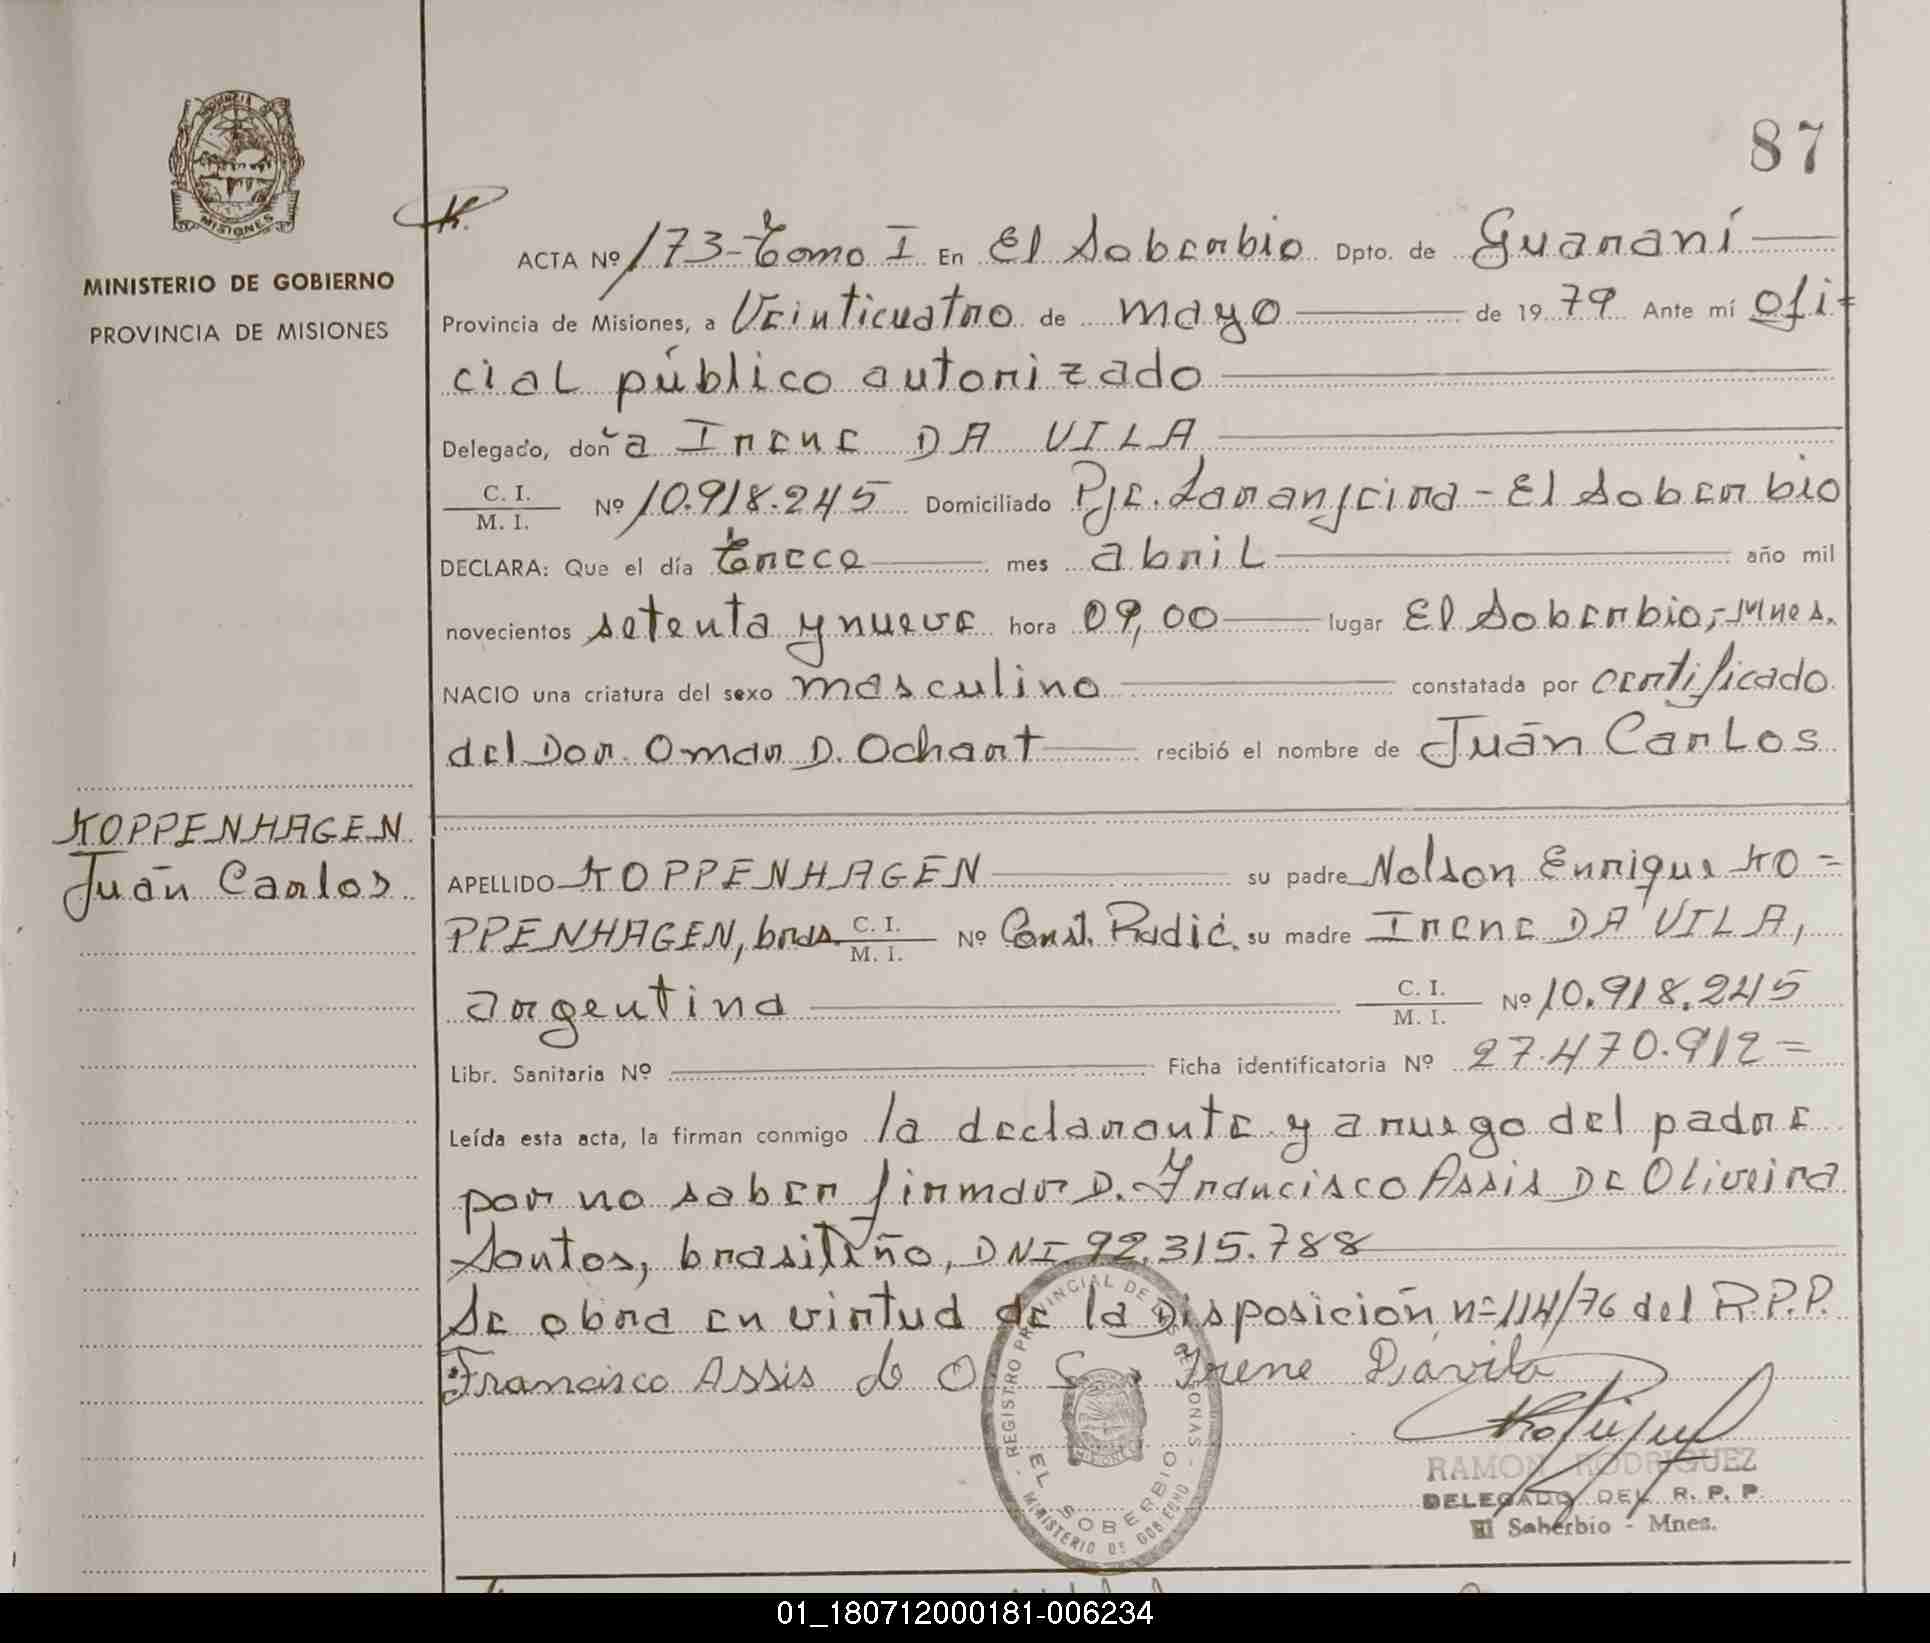 PROVINCIA
MISIONES
MINISTERIO DE GOBIERNO
PROVINCIA DE MISIONES
87
ACTA Nº 173-Tomo I En El Soberbio Dpto. de Guaraní
Provincia de Misiones, a Veinticuatro de mayo de 1979 Ante mí ofi=
cial público autorizado
Delegado, doña Irene DA VILA
C. I.
M. I. Nº 10.918.245 Domiciliado Pje. Laranjeira - El Soberbio
DECLARA: Que el día trece mes abril año mil
novecientos setenta y nueve hora 09,00 lugar El Soberbio,-Mnes.
NACIO una criatura del sexo masculino constatada por certificado
del Dor. Omar D. Ochart recibió el nombre de Juán Carlos
KOPPENHAGEN
Juán Carlos
APELLIDO KOPPENHAGEN su padre Nelson Enrique KO=
PPENHAGEN, bras. C. I. M. I. Nº Const. Radic. su madre Irene DA VILA,
argentina C. I. M. I. Nº 10.918.245
Libr. Sanitaria Nº Ficha identificatoria Nº 27.470.912=
Leída esta acta, la firman conmigo la declarante y a ruego del padre
por no saber firmar D. Francisco Assis De Oliveira
Santos, brasileño, DNI 92.315.788
Se obra en virtud de la Disposición nº 114/76 del R.P.P.
Francisco Assis de O S Irene Davila
REGISTRO PROVINCIAL DE LAS PERSONAS
EL SOBERBIO
MINISTERIO DE GOBIERNO
RAMON RODRIGUEZ
DELEGADO DEL R. P. P.
El Soberbio - Mnes.
01_180712000181-006234